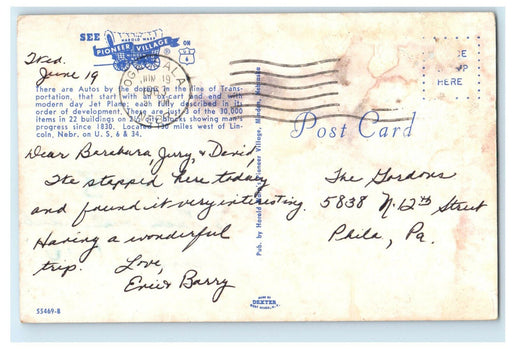 SEE
HAROLD WARP
PIONEER VILLAGE
ON
6
Wed.
June 19
OGALLALA
JUN 19
NEBR
There are Autos by the dozen in the line of Trans-
portation, that start with an ox-cart and end with
modern day Jet Plane; each fully described in its
order of development. These are just of the 30,000
items in 22 buildings on 2 city blocks showing man's
progress since 1830. Located 130 miles west of Lin-
coln, Nebr. on U.S. 6 & 34.
PLACE
STAMP
HERE
Post Card
Pub. by Harold Warp's Pioneer Village, Minden, Nebraska
Dear Barebara, Jerry, & David
We stopped here today
and found it very interesting.
Having a wonderful
trip. Love,
Eric & Barry
The Gordons
5838 N. 12th Street
Phila, Pa.
55469-B
MADE BY
DEXTER
WEST NYACK, N.Y.